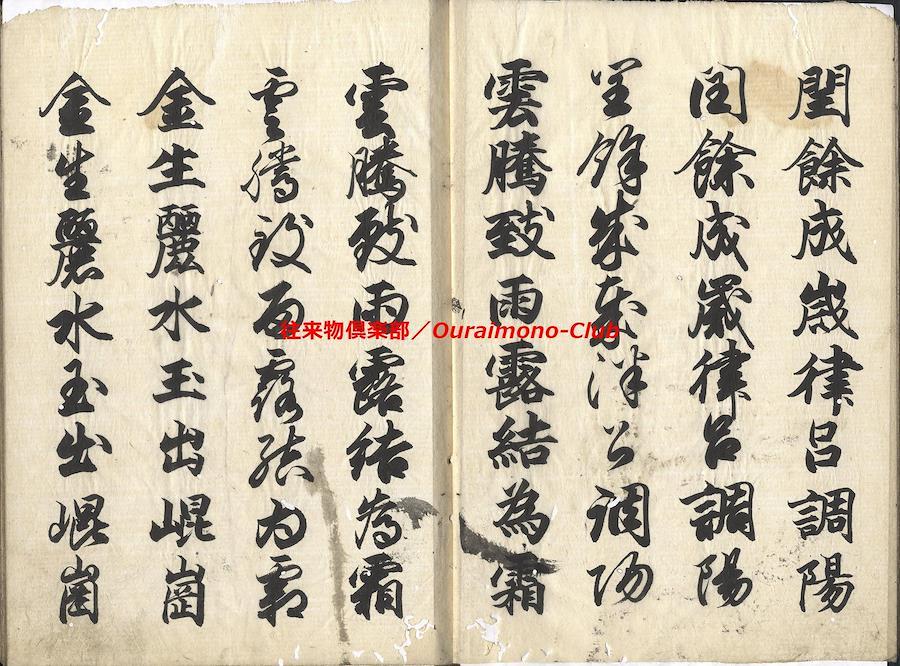 閏餘成歲律呂調陽
閏餘成歲律呂調陽
閏餘成歲律呂調陽
雲騰致雨露結為霜
雲騰致雨露結為霜
雲騰致雨露結為霜
金生麗水玉出崐崗
金生麗水玉出崐崗
往来物倶楽部／Ouraimono-Club